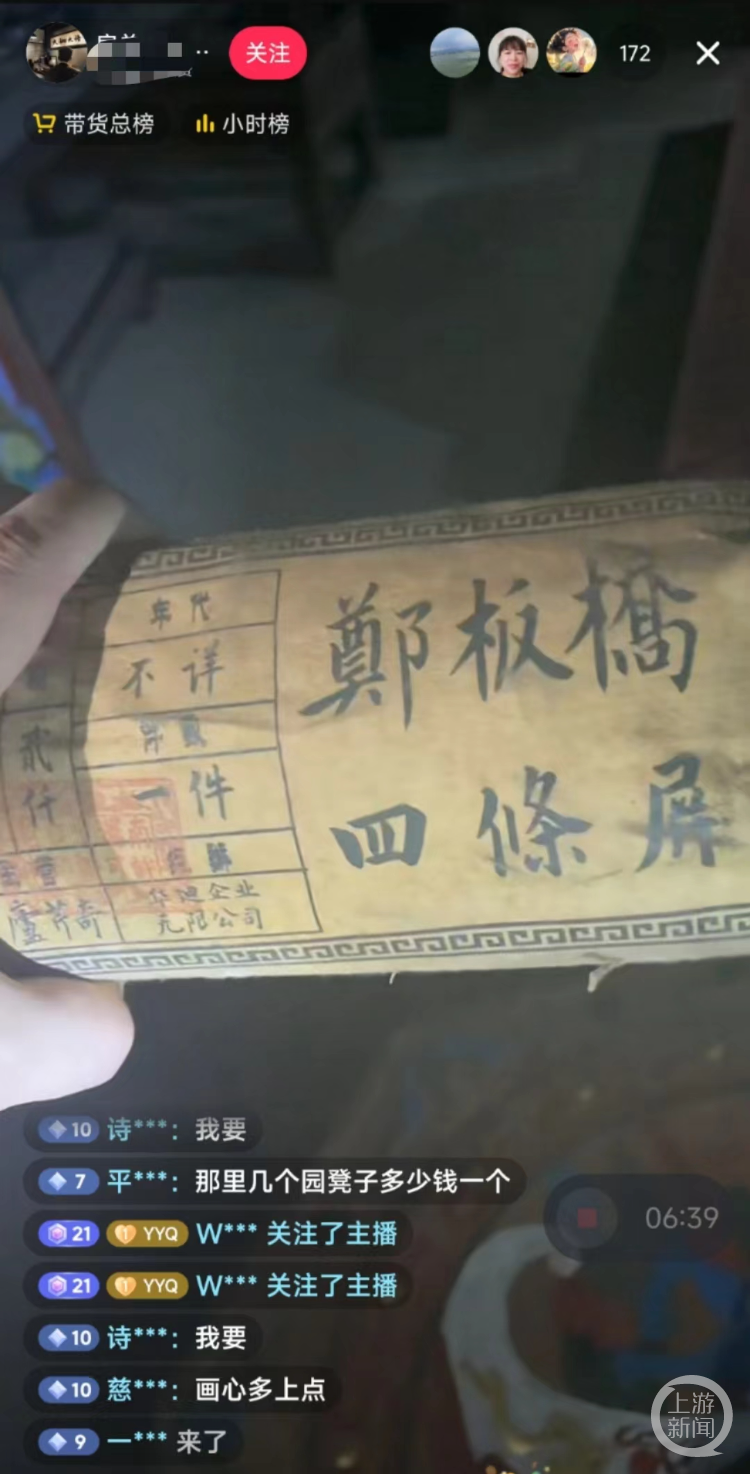 关注
172
带货总榜 小时榜
鄭板橋
四條屏
年代
不详
一件
华迪企业
无限公司
贰
仟
10 诗***：我要
7 平***：那里几个园凳子多少钱一个
21 YYQ W*** 关注了主播
21 YYQ W*** 关注了主播
10 诗***：我要
10 慈***：画心多上点
9 一*** 来了
06:39
上游
新闻